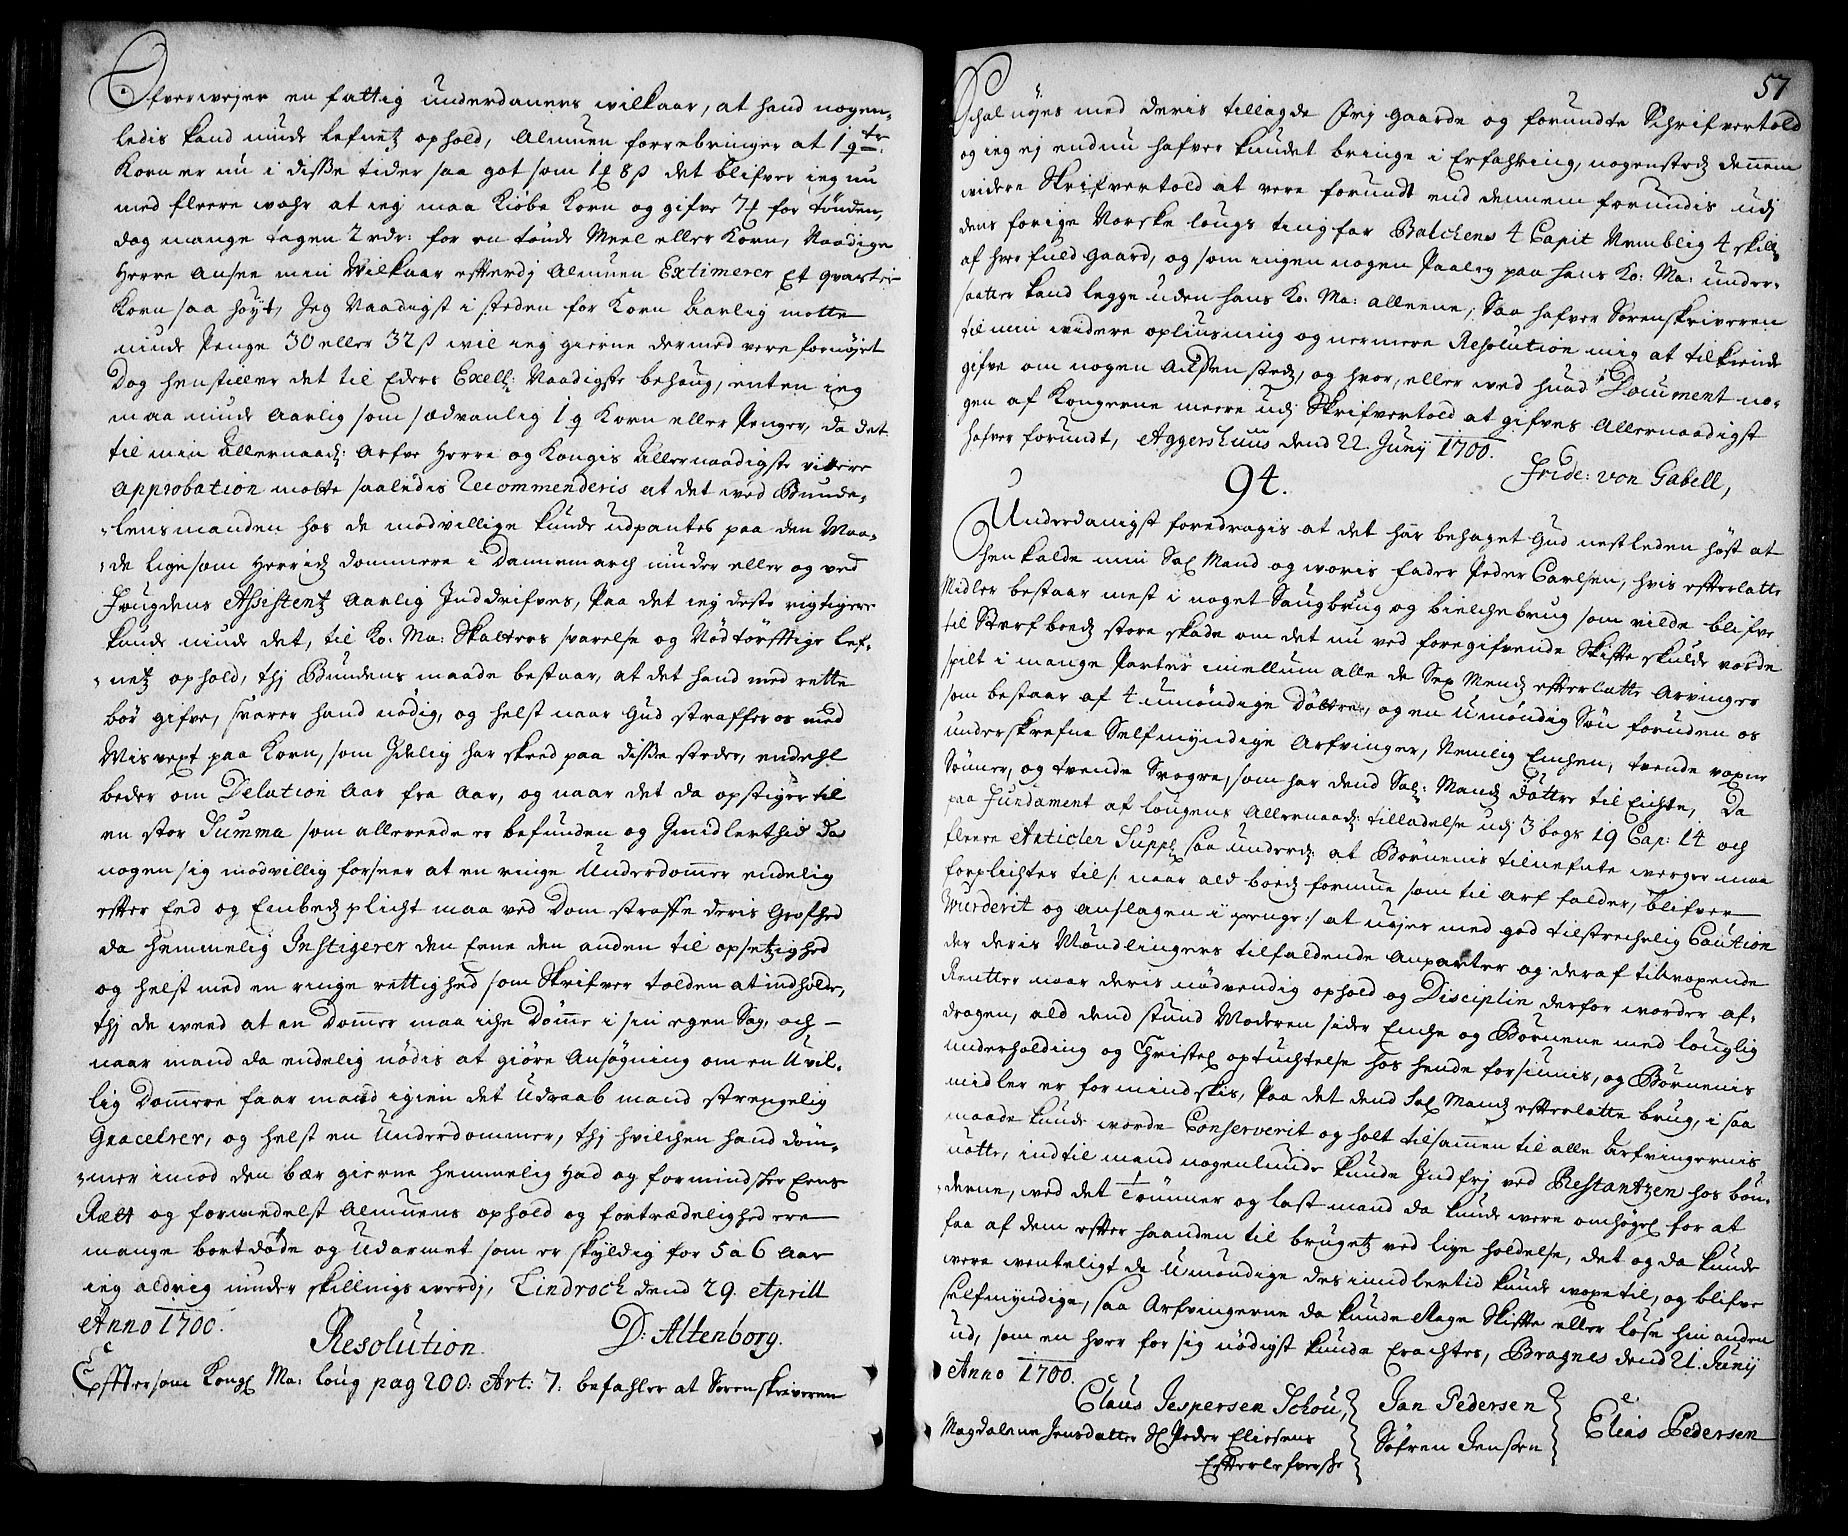 Ofverwejer en fattig underdaners wilkaar, at hand nogen-
ledis kand niude lefnetz ophold, Almuen forrebringer at 1 qtr:
Korn er nu i disse tider saa got som 1 8ß det blifver ieg nu
med fleere wahr at ieg maa Kiøbe Korn og gifve 7 for tønden,
dog mange tagen 2 rdr: for en tønde Meel eller Korn, Naadige
Herre Ansee min Wilkaar efterdj Almuen Extimerer Et qvarter
Korn saa høyt, Jeg Naadigst i steden for Korn Aarlig motte
niude Penge 30 eller 32ß wil ieg gierne dermed vere fornøjet
Dog henstiller det til Eders Exell: Naadigste behaug, enten ieg
maa niude Aarlig som sædvanlig 1 q Korn eller Penger, da det
til min Allernaad: Arfve Herre og Kongis Allernaadigste videre
Approbation motte saaledis Recommenderis at det wed Bunde-
-lensmanden hos de modvillige kunde udpantes paa den Maa-
-de ligesom Herridz dommere i Dannemarch niuder eller og ved
Fougdens Assistentz Aarlig Inddrifves, Paa det ieg deste rigtigere
kunde niude det, til Ko: Ma: Skatters svarelse og Nødtørfftige lef-
-netz ophold, thj Bundens maade bestaar, at det hand med rette
bør gifve, svarer hand nødig, og helst naar Gud straffer os med
Misvext paa Korn, som Idelig har skeed paa disse steder, endehl
beder om Delation Aar fra Aar, og naar det da opstiger til
en stor Summa som allereede er befunden og Imidlerthid da
nogen sig modvillig forseer at en ringe Underdommer endelig
efter Eed og Embedz plicht maa ved Dom straffe deris Grofhed
da hemmelig Instigerer den Eene den anden til opsetzighed
og helst med en ringe rettighed som Skrifver tolden at indholde,
thj de weed at en Dommer maa iche Dømme i sin egen Sag, och
naar mand da endelig nødis at giøre Ansøgning om en Uvil-
lig Dommere faar mand igien det Udraab mand strengelig
Gracelrer, og helst en Underdommer, thj hvilchen hand døm-
-mer imod den bær gierne hemmelig Had og formindscher Eens
Rætt og formedelst Almuens ophold og fortrædelighed ere
mange bortdøde og Udarmet som er skyldig for 5 a 6 Aar
ieg aldrig niuder skillings werdj, Lindroch dend 29. Aprill
Anno 1700.
D: Altenborg.
Resolution.
Efftersom Kongl Ma: loug pag 200: Art: 7: befahler at Sorenskriveren
57
Schal nøyes med deris tillagde Frij gaarde og forundte Schrifvertold
og ieg ej endnu hafver kundet bringe i Erfahring, nogensteds dennem
widere Skrifvertold at vere forundt end dennem forundis udj
dens forige Norske lougs tingfar Balchens 4 Capit Nemblig 4 skill
af hver fuld Gaard, og som ingen nogen Paaleg paa hans Ko: Ma: under-
saatter kand legge uden hans Ko: Ma: alleene, Saa hafver Sorenskriveren
til min widere opliusning og nermere Resolution mig at tilkiende
gifve om nogen Anden steds, og hvor, eller wed huad Document no-
gen af Kongerne meere udj Skrifvertold at gifves Allernaadigst
hafver forundt, Aggershuus dend 22. Junij 1700.
Fride: von Gabell,
94.
Underdanigst foredragis at det har behaget Gud nestleden høst at
henkalde min Sal Mand og woris fader Peder Carlsen, hvis effterlatte
Midler bestaar mest i noget Saugbrug og bielchebrug som vilde blifve
til Sterfboedz store skade om det nu ved foregifvende Skiffte skulde vorde
spilt i mange Parter imellum alle de Sex Mends effterlatte Arvinger
som bestaar af 4 umøndige døttre, og en Umøndig Søn foruden os
underskrefne Selfmyndige Arfvinger, Nemlig Enchen, tvende voxne
Sønner, og tvende Svogre, som har dend Sal: Mands døttre til Eichte, Da
paa Fundament af lougens Allernaad: tilladelse udj 3 bogs 19 Cap: 14 och
fleere Articler Suppl saa underd: at Børnenis tilnefnte werger maa
forplichter til /: naar ald boedz formue som til Arf falder, blifver
Wurderit og Anslagen i penge :/ at nøjes med god tilstrechelig Caution
der deris Møndlingers tilfaldende Anparter og deraf tilvoxende
Rentter naar deris nødvendig ophold og Disciplin derfor worder af-
dragen, ald dend stund Moderen sider Enche og Børnene med louglig
underholding og Christel optuchtelse hos hende forsiunis, og Børnenis
midler ei formindskis, Paa det dend Sal Mands effterlatte brug, i saa
maade kunde worde Conserverit og holt tilsammen til alle Arfvingernis
nøtte, indtil mand nogenlunde kunde Indfrj ved Restantzen hos bøn-
-derne, wed det Trunner og last mand da kunde were omhøgel for at
faa af dem effter haanden til brugetz ved lige holdelse, det og da kunde
were wenteligt de Umøndige des imidlertid kunde woxe til, og blifve
selfmyndige, saa Arfvingerne da kunde Mage Skiffte eller løse hin anden
ud, som en hver for sig nødigst kunde Erachter, Bragnes dend 21. Junij
Anno 1700.
Claus Jespersen Schou, Jan Pedersen
Magdalene Jensdatter Sl Peder Eliesens Søfren Jensen Elias Pedersen
Effterlefversche